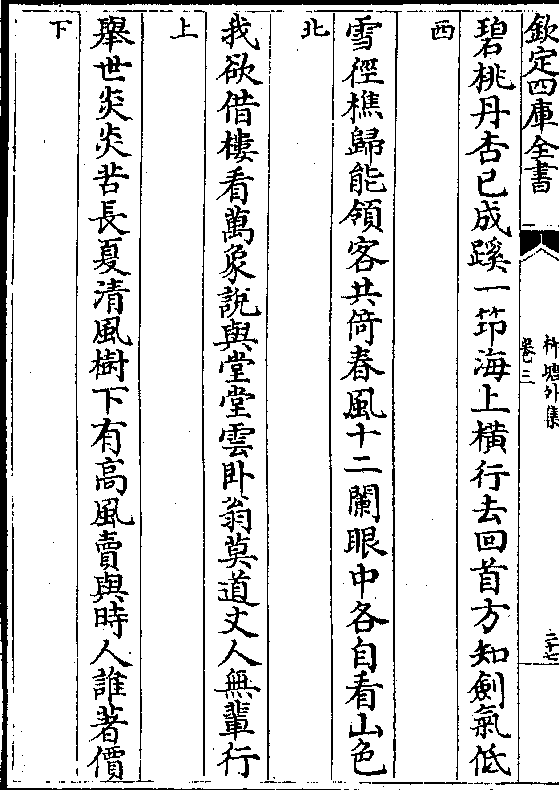 欽定四庫全書
卷三
二十七
碧桃丹杏已成蹊一笻海上橫行去回首方知劍氣低
西
雪徑樵歸能領客共倚春風十二闌眼中各自看山色
北
我欲借樓看萬象說與堂堂雲卧翁莫道丈人無輩行
上
舉世炎炎苦長夏清風樹下有高風賣與時人誰著價
下